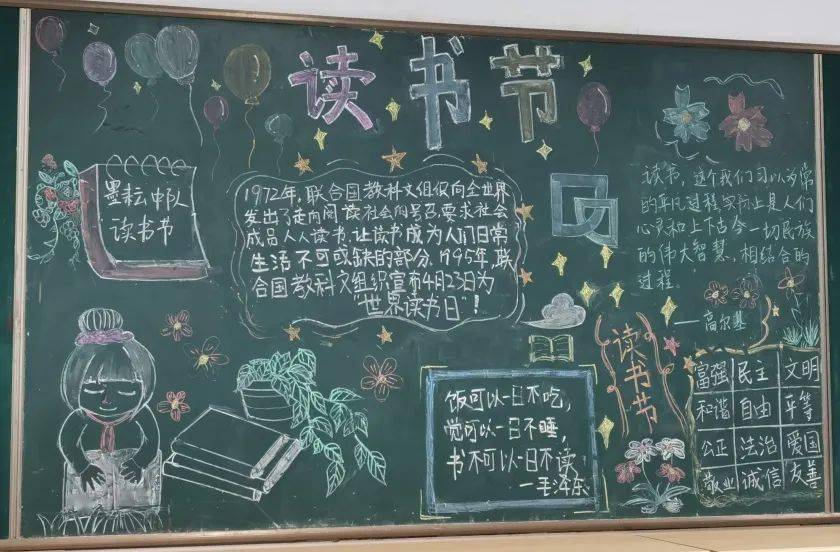 读书节
墨耘中队
读书节
1972年,联合国教科文组织向全世界
发出了走向阅读社会的号召,要求社会
成员人人读书,让读书成为人们日常
生活不可或缺的部分,1995年,联
合国教科文组织宣布4月23日为
"世界读书日"!
读书,这个我们习以为常
的平凡过程,实际上是人们
心灵和上下古今一切民族
的伟大智慧,相结合的
过程。
——高尔基
读书节
饭可以一日不吃,
觉可以一日不睡,
书不可以一日不读
—毛泽东
富强 民主 文明
和谐 自由 平等
公正 法治 爱国
敬业 诚信 友善